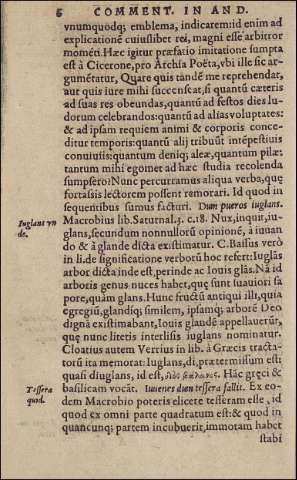 6 COMMENT. IN AND.
vnumquodq; emblema, indicarem: id enim ad
explicationẽ cuiuslibet rei, magni esse arbitror
momẽti. Hæc igitur præfatio imitatione sumpta
est à Cicerone, pro Archia Poëta, vbi ille sic ar-
gumẽtatur, Quare quis tandẽ me reprehendat,
aut quis iure mihi succenseat, si quantũ cæteris
ad suas res obeundas, quantũ ad festos dies lu-
dorum celebrandos: quantũ ad alias voluptates:
& ad ipsam requiem animi & corporis conce-
ditur temporis: quantũ alij tribuũt intẽpestiuis
conuiuiis: quantum deniq; aleæ, quantum pilæ:
tantum mihi egomet ad hæc studia recolenda
sumpsero? Nunc percurramus aliqua verba, quę
fortassis lectorem possent remorari. Id quod in
sequentibus sumus facturi. Dum pueros iuglans.
Iuglans vn
de.
Macrobius lib. Saturnal. 3. c. 18. Nux, inquit, iu-
glans, secundum nonnullorũ opinionẽ, à iuuan
do & à glande dicta existimatur. C. Bassus verò
in li. de significatione verborũ hoc refert: Iuglãs
arbor dicta inde est, perinde ac Iouis glãs. Nã id
arboris genus nuces habet, quę sunt suauiori sa
pore, quàm glans. Hunc fructũ antiqui illi, quia
egregiũ, glandiq; similem, ipsamq; arborẽ Deo
dignã existimabant, Iouis glandẽ appellauerũt,
quę nunc literis interlisis iuglans nominatur.
Cloatius autem Verrius in lib. à Græcis tractato-
rũ ita memorat: Iuglans, di, prætermissum est:
quasi diuglans, id est, διὸς βάλανος. Hãc gręci &
Tessera
quod.
basilicam vocãt. Iuuenes dum tessera fallit. Ex eo-
dem Macrobio poteris elicere tesseram esse, id
quod ex omni parte quadratum est: & quod in
quancunq; partem incubuerit, immotam habet
stabi